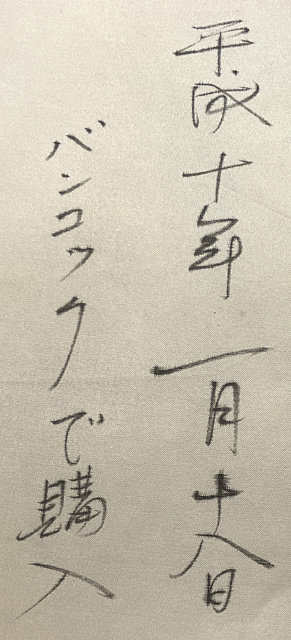 平成十年一月十八日
バンコックで購入